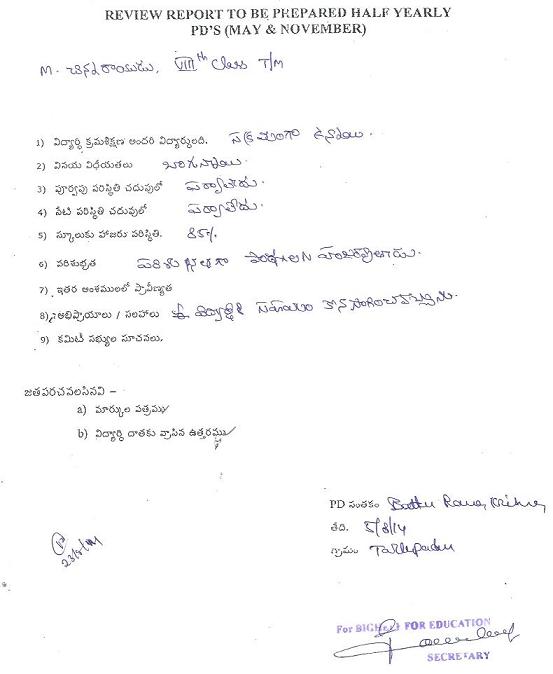 REVIEW REPORT TO BE PREPARED HALF YEARLY
PD'S (MAY & NOVEMBER)
M. చిన్నరాయుడు, VIIIth Class T/M
1) విద్యార్థి క్రమశిక్షణ అందరి విద్యార్థులది. సక్రమంగా ఉన్నాయి.
2) వినయ విధేయతలు బాగున్నాయి.
3) పూర్వపు పరిస్థితి చదువులో పర్వాలేదు.
4) నేటి పరిస్థితి చదువులో పర్వాలేదు.
5) స్కూలుకు హాజరు పరిస్థితి. 85%
6) పరిశుభ్రత పరిశుభ్రంగా
7) ఇతర అంశములలో ప్రావీణ్యత
8) అభిప్రాయాలు / సలహాలు ఈ విద్యార్థికి సహాయం కొనసాగించవచ్చును.
9) కమిటీ సభ్యుల సూచనలు.
జతపరచవలసినవి –
a) మార్కుల పత్రము
b) విద్యార్థి దాతకు వ్రాసిన ఉత్తరము
PD సంతకం Battu Rama Krishna
తేది. 5/8/14
గ్రామం Tarlupadu
23/8/14
For BIGHELP FOR EDUCATION
SECRETARY